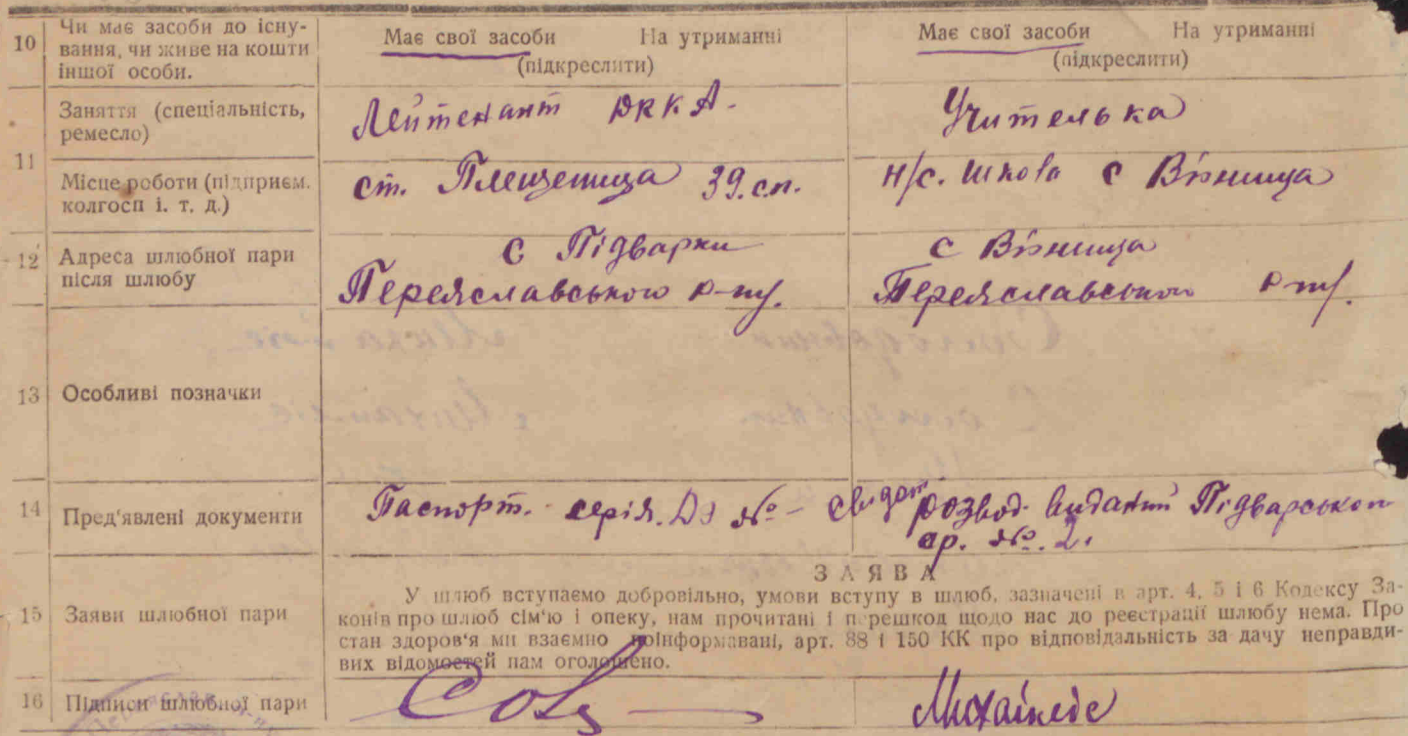 10 Чи має засоби до існу-
вання, чи живе на кошти
іншої особи.
Має свої засоби На утриманні
(підкреслити)
Має свої засоби На утриманні
(підкреслити)
11
Заняття (спеціальність,
ремесло)
Лейтенант РККА.
Учителька
Місце роботи (підприєм.
колгосп і. т. д.)
ст. Плещеница 39. с.п.
н/с. школа с Вінниця
12 Адреса шлюбної пари
після шлюбу
с Підварки
Переяславського р-ну.
с Вінниця
Переяславського р-ну.
13 Особливі позначки
14 Пред'явлені документи
Паспорт. серія. № – свідот розвод. виданий Підварського
ср. №. 2.
ЗАЯВА
15 Заяви шлюбної пари
У шлюб вступаємо добровільно, умови вступу в шлюб, зазначені в арт. 4, 5 і 6 Кодексу За-
конів про шлюб сім'ю і опеку, нам прочитані і перешкод щодо нас до реєстрації шлюбу нема. Про
стан здоров'я ми взаємно поінформавані, арт. 88 і 150 КК про відповідальність за дачу неправди-
вих відомостей нам оголошено.
16 Підписи шлюбної пари